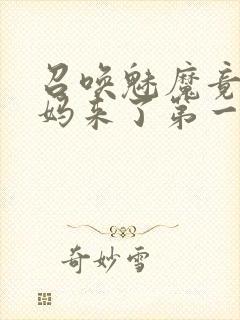 召唤魅魔竟
妈来了第一
奇妙雪